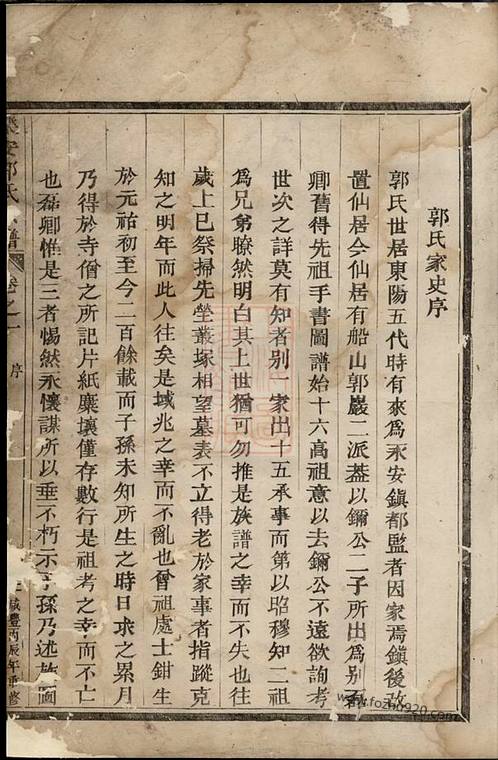 郭氏家史序
郭氏世居東陽五代時有來爲永安鎭都監者因家焉鎭後改
置仙居今仙居有船山郭巖二派葢以鎭公二子所出爲別磊
卿舊得先祖手書圖譜始十六高祖意以去鎭公不遠欲詢考
世次之詳莫有知者別一家出十五承事而第以昭穆知二祖
爲兄弟瞭然明白其上世猶可勿推是族譜之幸而不失也往
歲上巳祭掃先塋叢塚相望墓表不立得老於家事者指蹤克
知之明年而此人往矣是域兆之幸而不亂也曾祖處士鉗生
於元祐初至今二百餘載而子孫未知所生之時日求之累月
乃得於寺僧之所記片紙糜壞僅存數行是祖考之幸而不亡
也磊卿惟是三者惕然永懷謀所以垂不朽示子孫乃述族圖
郭氏 譜 卷之一 序
咸豐丙辰年重修
www.fozhu920.com